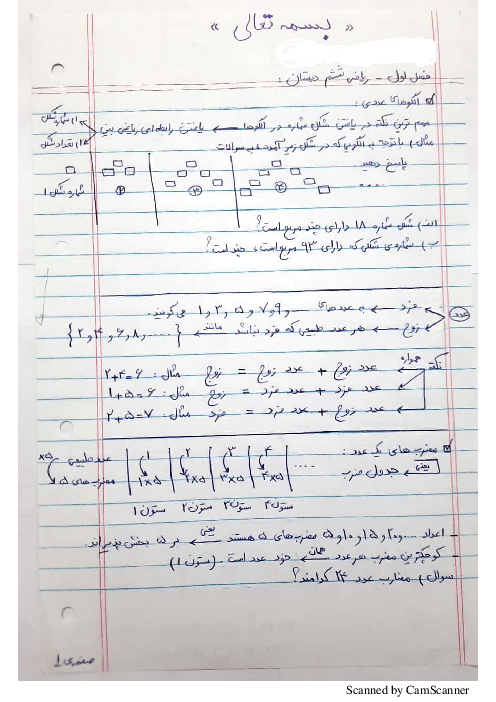 « بسمه تعالی »
فصل اول - ریاضی ششم دبستان :
الگوهای عددی :
مهم ترین نکته در یافتن شکل شماره در الگوها ← یافتن رابطه ای ریاضی بین
۱) شماره شکل
۲) تعداد شکل
مثال) با توجه به الگویی که در شکل زیر آمده، به سوالات
پاسخ دهید
شماره شکل ۱ ۲ ۳ ۴ ....
الف) شکل شماره ۱۸ دارای چند مربع است؟
ب) شماره ی شکلی که دارای ۹۳ مربع است، چند است؟
عدد
فرد ← به عددهای ... و ۹ و ۷ و ۵ و ۳ و ۱ می گویند.
زوج ← هر عدد طبیعی که فرد نباشد مانند {۲ و ۴ و ۶ و ۸ و ......}
نکته همواره
عدد زوج + عدد زوج = زوج مثال: ۲+۴=۶
عدد فرد + عدد فرد = زوج مثال: ۱+۵=۶
عدد زوج + عدد فرد = فرد مثال: ۲+۵=۷
مضرب های یک عدد :
یعنی جدول ضرب
×۵ عدد طبیعی ۱ ۲ ۳ ۴ ....
مضرب های ۵ ۱×۵ ۲×۵ ۳×۵ ۴×۵
ستون ۱ ستون ۲ ستون ۳ ستون ۴
- اعداد ..... و ۲۰ و ۱۵ و ۱۰ و ۵ مضرب های ۵ هستند یعنی بر ۵ بخش پذیراند.
- کوچکترین مضرب هر عدد همان خود عدد است. (ستون ۱)
سوال) مضارب عدد ۲۴ کدامند؟
صفحه ی ۱
Scanned by CamScanner